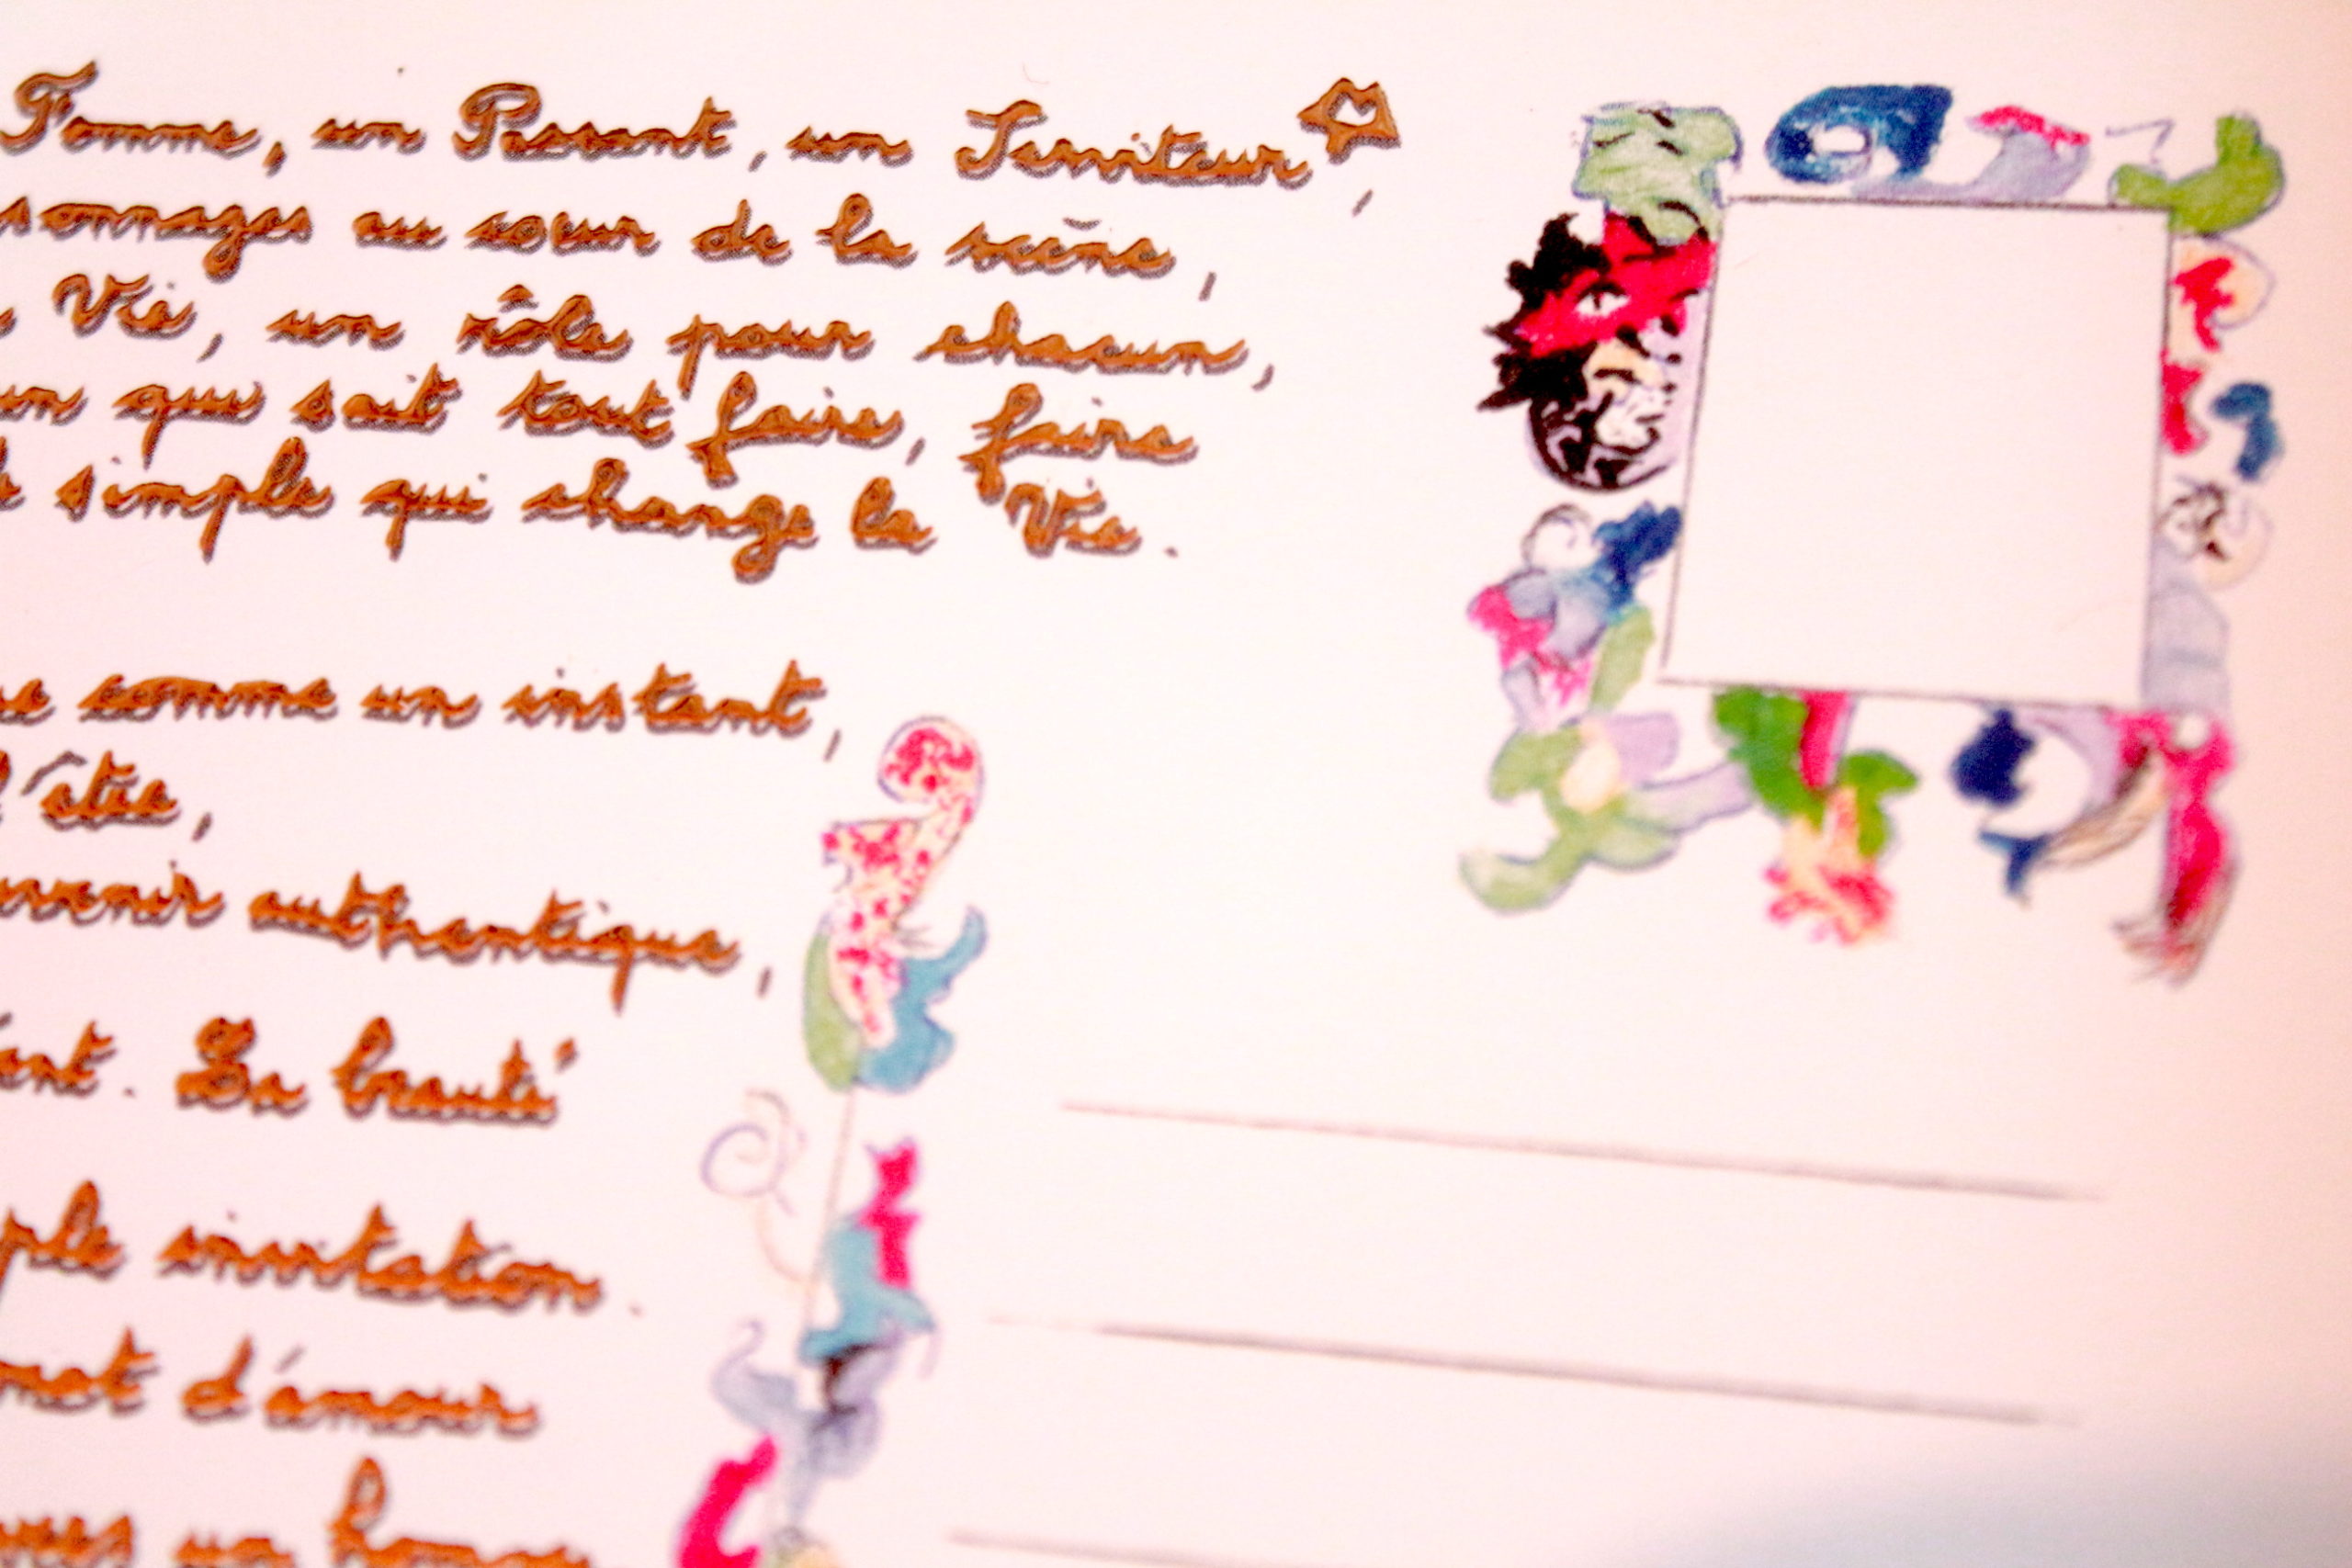 Femme, un Passant, un Serviteur,
sonnages au coeur de la scène,
Vie, un rôle pour chacun,
un que sait tout faire, faire
simple qui change la Vie.
comme un instant,
d'étée,
uvenir authentique,
ant. La beauté
ple invitation.
mot d'amour
un homme